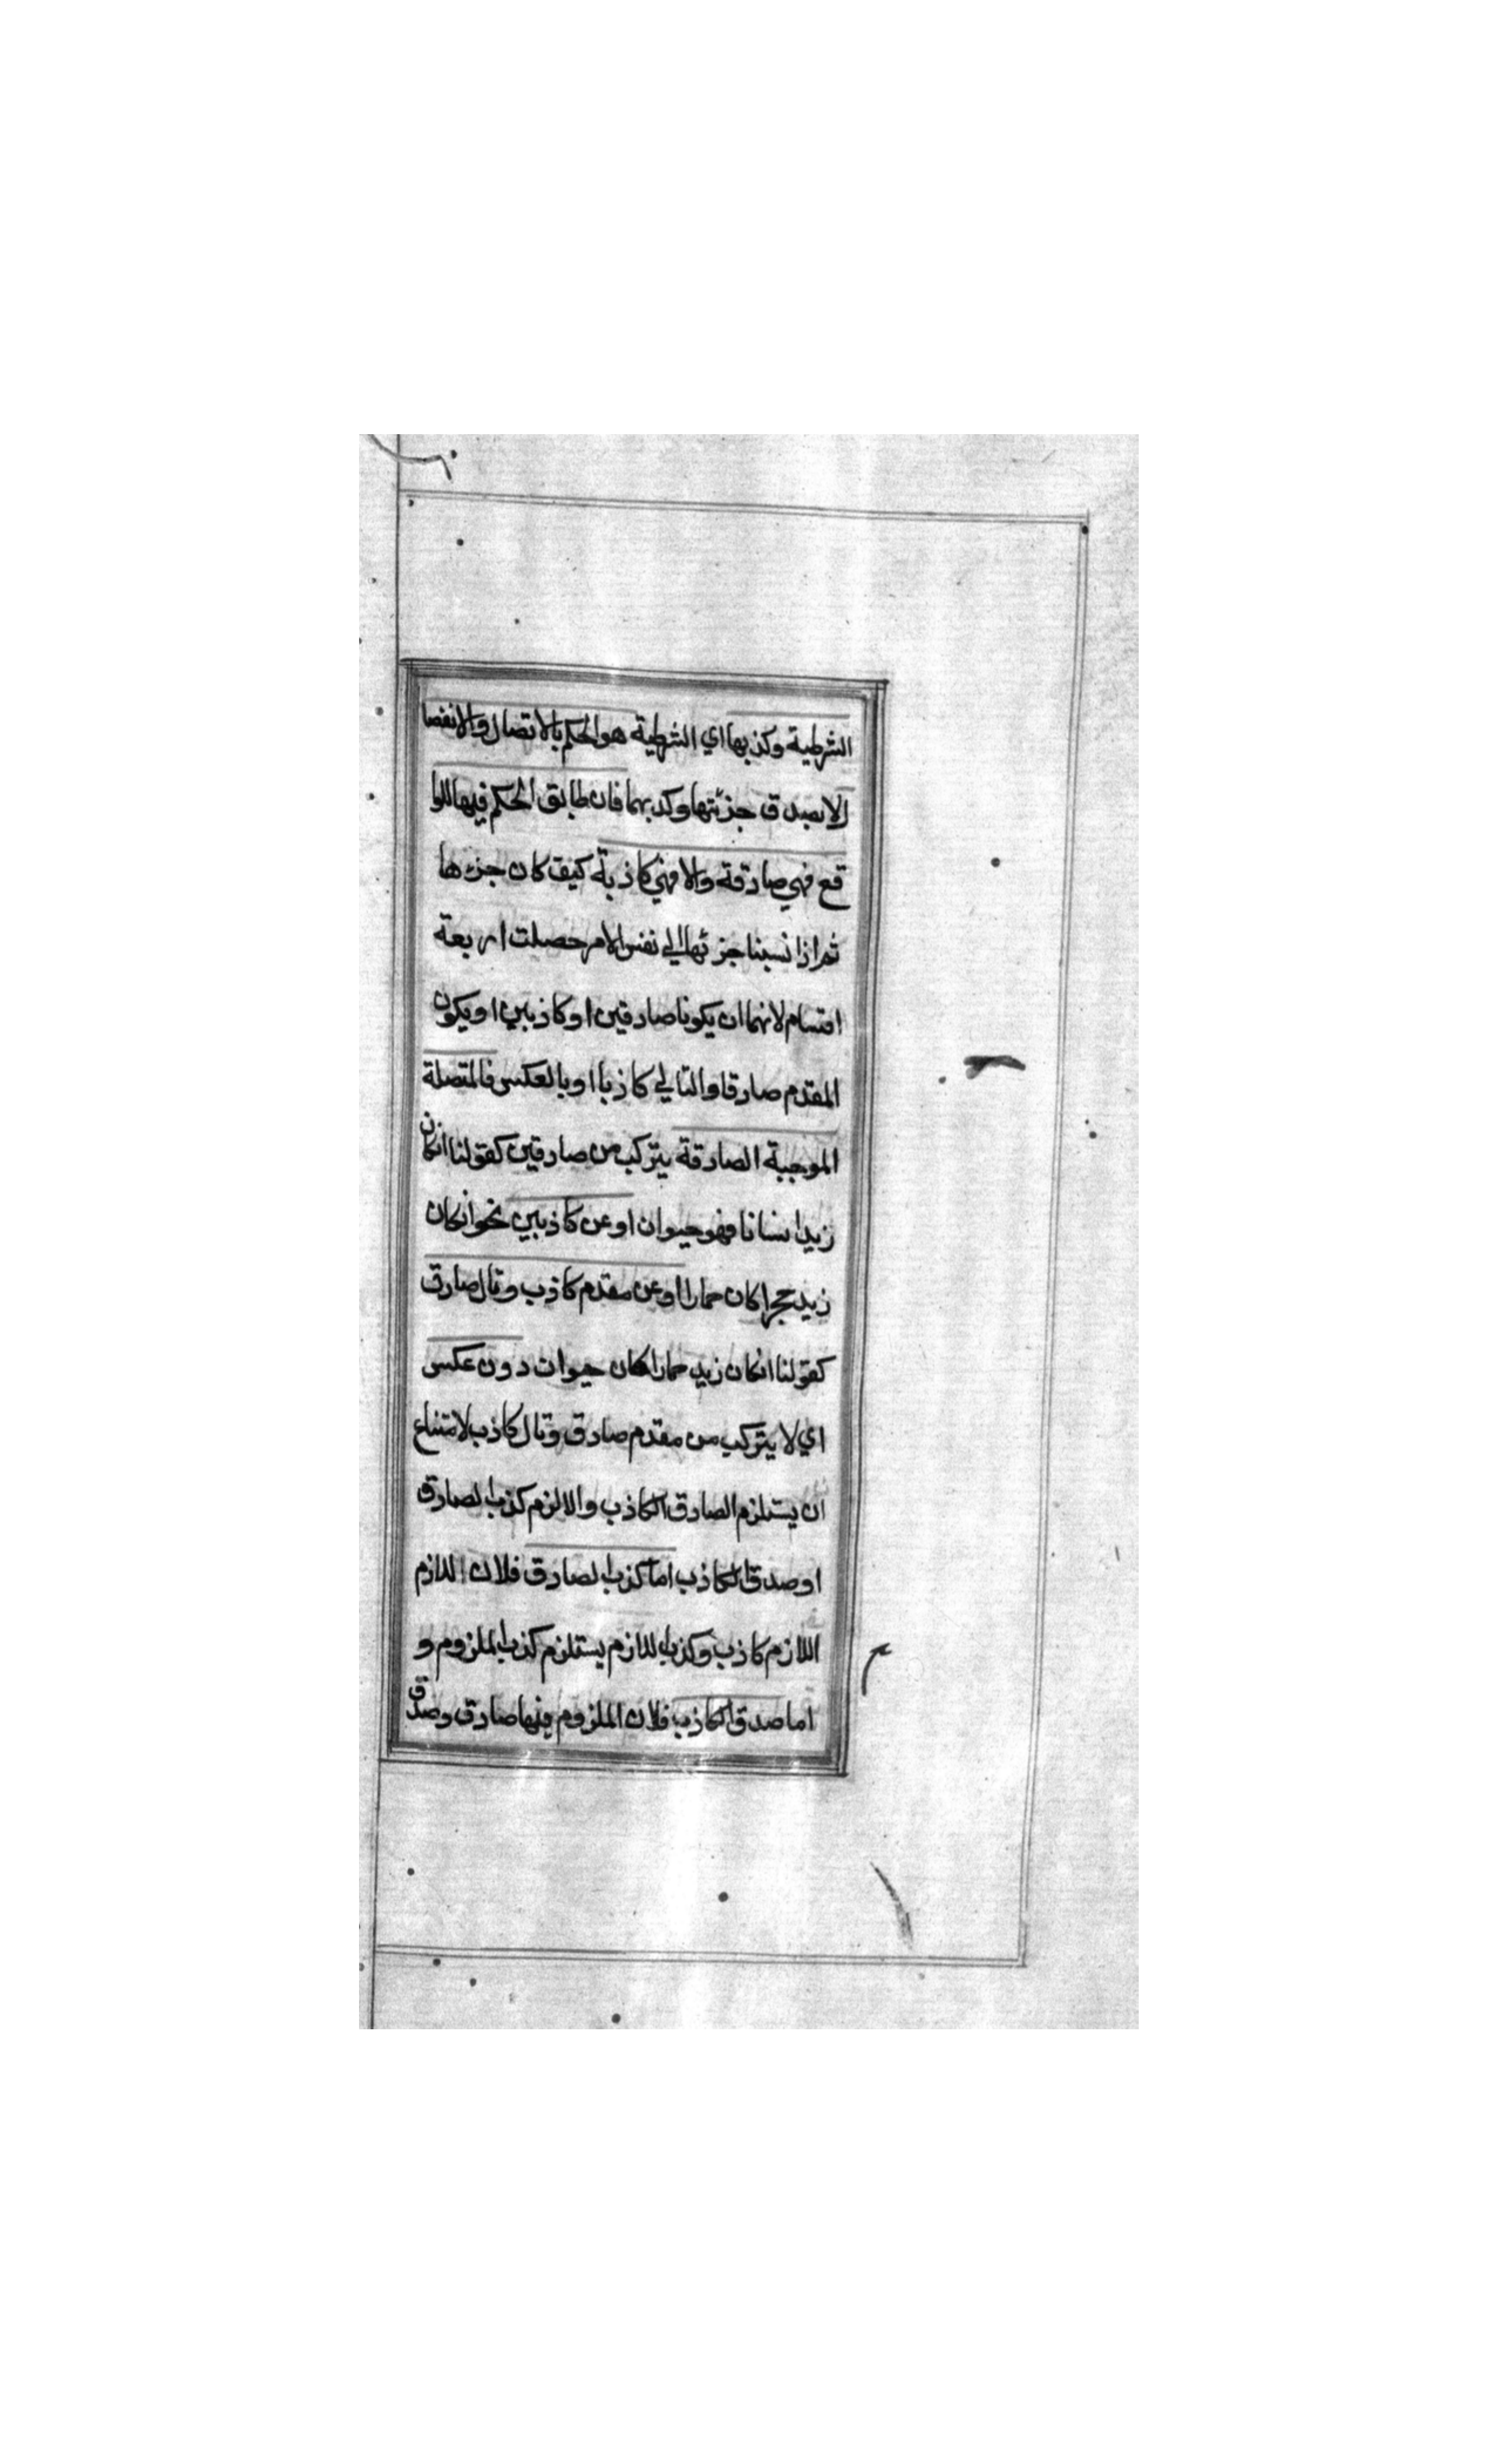 الشرطية وكذبها اي الشرطية هو الحكم بالاتصال والانفصا
لا بصدق جزئتها وكذبهما فان طابق الحكم فيها للوا
قع فهي صادقة والا فهي كاذبة كيف كان جزءها
ثم اذا نسبنا جزئها الي نفس الامر حصلت اربعة
اقسام لانهما ان يكونا صادقين او كاذبين او يكون
المقدم صادقا والتالي كاذبا او بالعكس فالمتصلة
الموجبة الصادقة يتركب من صادقين كقولنا انكان
زيد انسانا فهو حيوان او عن كاذبين نحو انكان
زيد حجرا كان حمارا او عن مقدم كاذب وتال صادق
كقولنا انكان زيد حمارا كان حيوان دون عكس
اي لا يتركب من مقدم صادق وتال كاذب لامتناع
ان يستلزم الصادق الكاذب والا لزم كذب الصادق
او صدق الكاذب اما كذب الصادق فلان اللازم
اللازم كاذب وكذب اللازم يستلزم كذب الملزوم و
اما صدق الكاذب فلان الملزوم فيها صادق وصدق